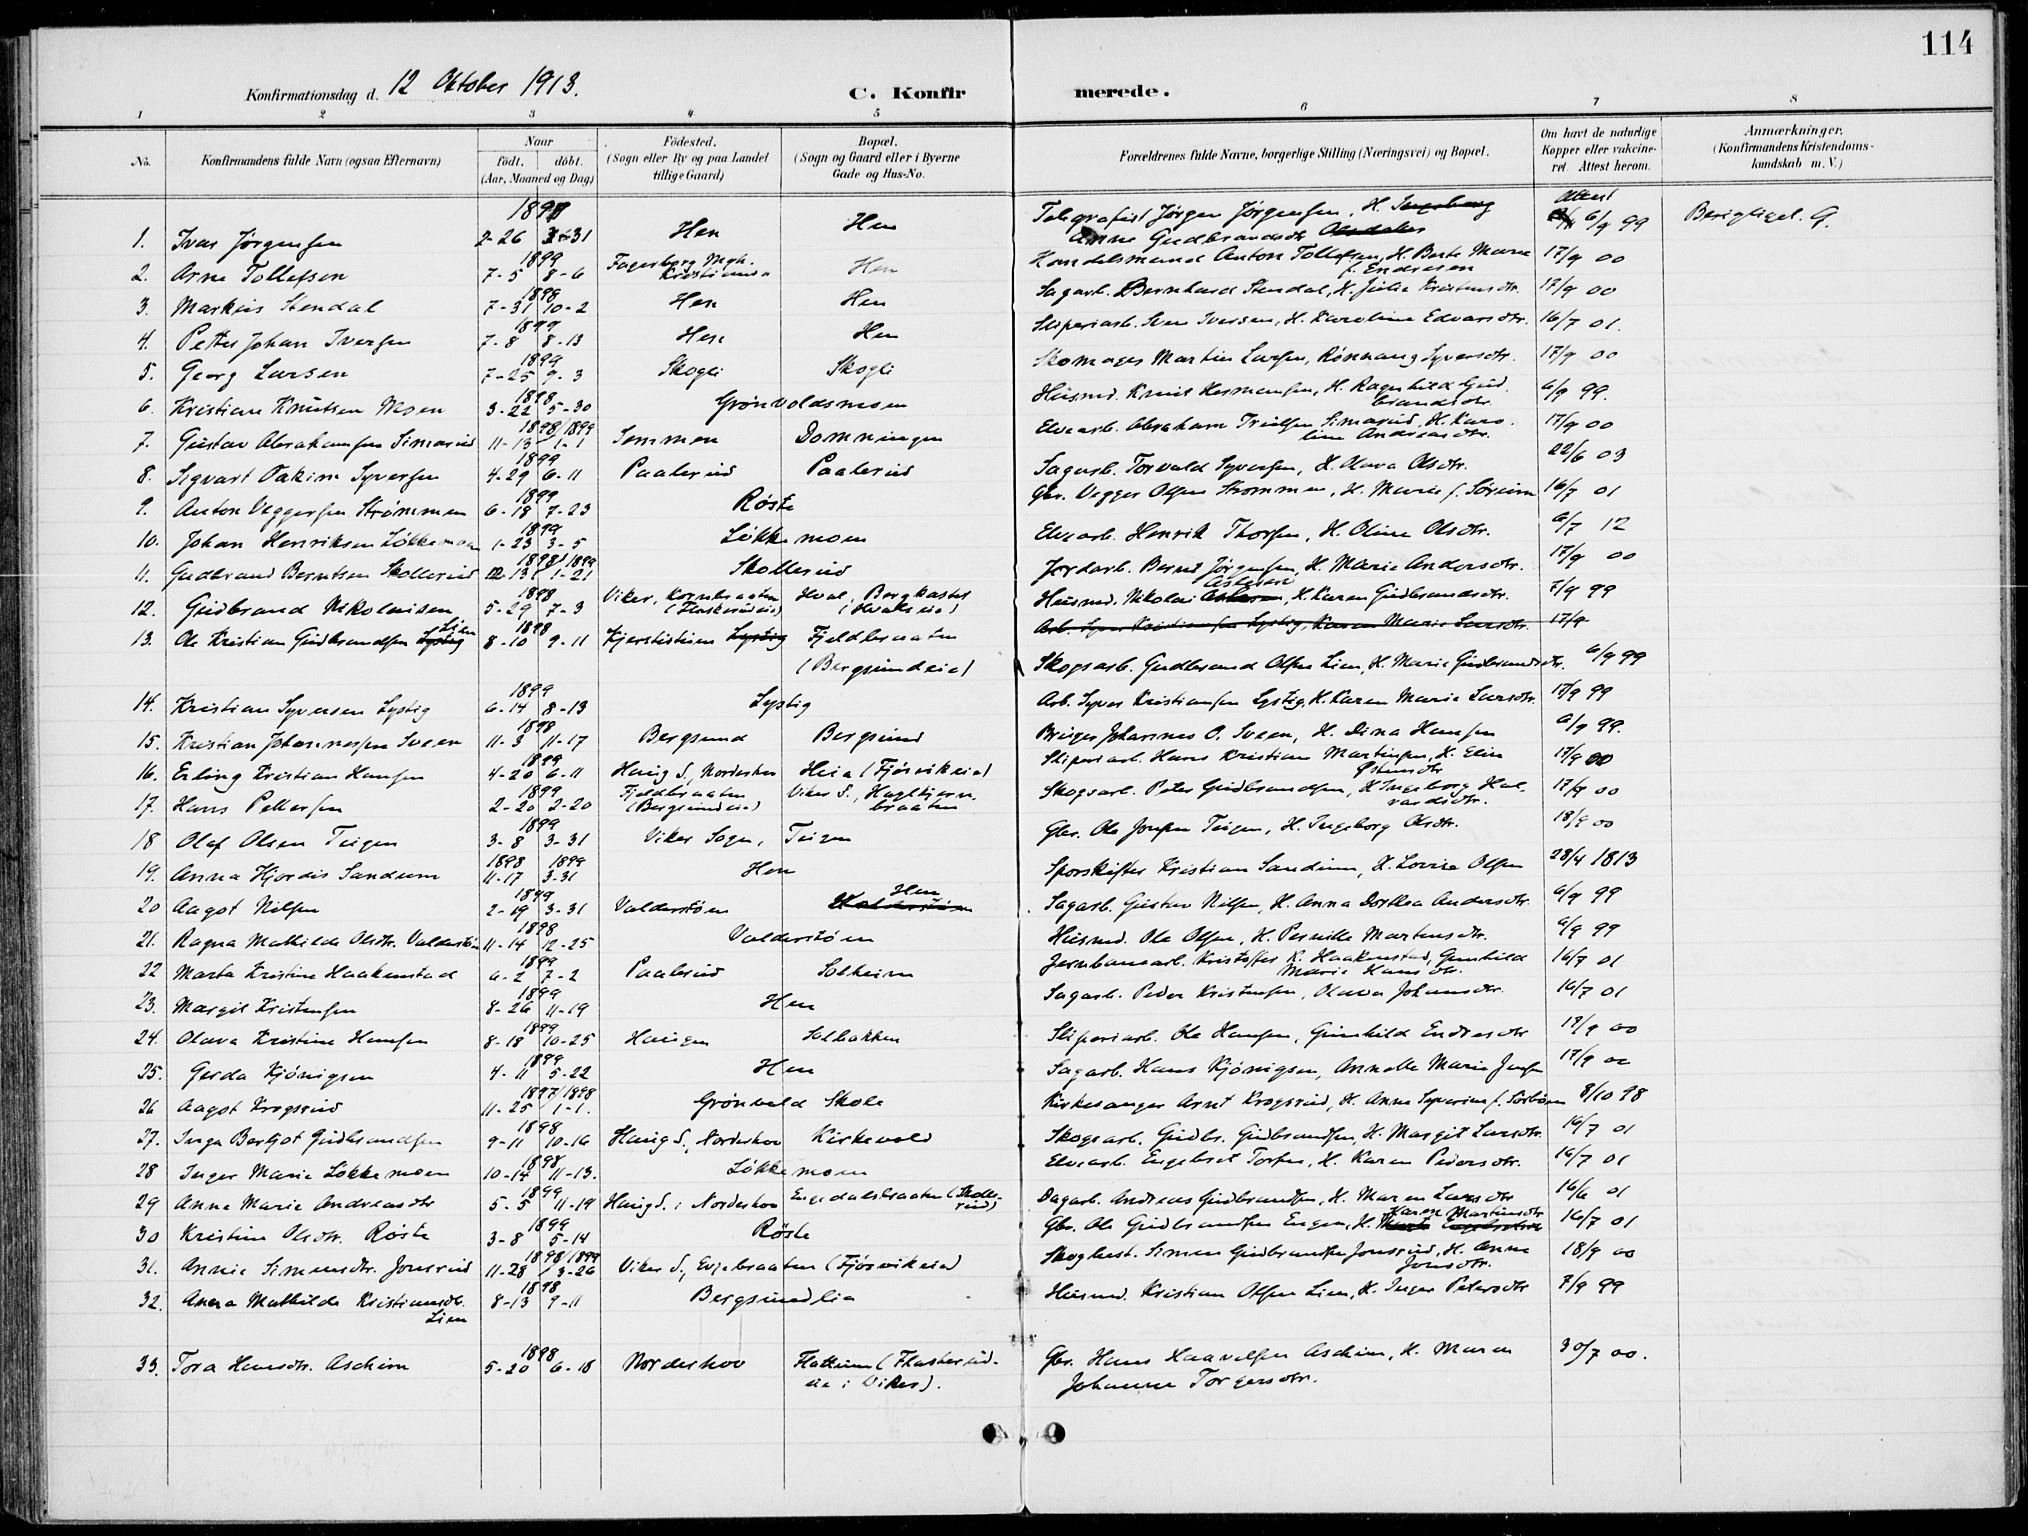 114
Konfirmationsdag d. 12 Oktober 1913.
C. Konfirmerede.
1 2 3 4 5 6 7 8
No. Konfirmandens fulde Navn (ogsaa Efternavn) Naar Fødested. Bopæl. Forældrenes fulde Navne, borgerlige Stilling (Næringsvei) og Bopæl. Om havt de naturlige Anmærkninger.
født. døbt. (Sogn eller By og paa Landet (Sogn og Gaard eller i Byerne Kopper eller vakcine- (Konfirmandens Kristendoms-
(Aar, Maaned og Dag) tillige Gaard) Gade og Hus-No. ret. Attest herom. kundskab m. V.)
1. Ivar Jørgensen 1898 2-26 3-31 Hen Hen Telegrafist Jørgen Jørgensen, H. Anne Gudbrandsdtr. Attest 6/9 99 Berigtiget. G.
2. Arne Tollefsen 1899 7-5 8-6 Fagerborg Mgh. Kristiania Hen Handelsmand Anton Tollefsen, H. Berte Marie f. Endresen 17/9 00
3. Markus Stendal 1898 7-31 10-2 Hen Hen Sagarb. Bernhard Stendal, H. Julie Kristensdtr. 17/9 00
4. Petter Johan Iversen 1899 7-8 8-13 Hen Hen Sliperiarb. Sven Iversen, H. Karoline Edvardsdtr. 16/7 01.
5. Georg Larsen 1899 7-25 9-3 Skogli Skogli Skomager Martin Larsen, Rønnaug Syversdtr. 17/9 00
6. Kristian Knutsen Moen 1898 3-22 5-30 Grønvoldsmoen Husmd. Knut Hermansen, H. Ragnhild Gudbrandsdtr. 6/9 99.
7. Gustav Abrahamsen Simarud 1898/1899 11-13 1-1 Semmen Domningen Elvearb. Abraham Trulsen Simarud, H. Karoline Andreasdtr. 17/9 00
8. Sigvart Joakim Syversen 1899 4-29 6-11 Paalerud Paalerud Sagarb. Torvald Syversen, H. Olava Olsdtr. 22/6 03
9. Anton Veggersen Strømmen 1899 6-18 7-23 Røste Gbr. Vegger Olsen Strømmen, H. Marie f. Sørum 16/7 01
10. Johan Henriksen Løkkemoen 1899 1-23 3-5 Løkkemoen Elvearb. Henrik Thorsen, H. Oline Olsdtr. 6/7 12
11. Gudbrand Berntsen Skollerud 1898/1899 12-13 1-21 Skollerud Jordarb. Bernt Jørgensen, H. Marie Andersdtr. 17/9 00
12. Gudbrand Nikolaisen 1898 5-29 7-3 Viker, Kornbraaten (Flaskerudeie) Hval, Bergkastet (Hvalseie) Husmd. Nikolai Aslesen, H. Karen Gudbrandsdtr. 7/9 99
13. Ole Kristian Gudbrandsen Lien 1898 8-10 9-11 Kjerstistuen Fjeldbraaten Arb. Syver Kristiansen Lystig, Karen Marie Larsdtr. 17/9
(Bergsundeie) Skogsarb. Gudbrand Olsen Lien, H. Marie Gudbrandsdtr. 6/9 99
14. Kristian Syversen Lystig 1899 6-14 8-13 Lystig Arb. Syver Kristiansen Lystig, H. Karen Marie Larsdtr. 17/9 99
15. Kristian Johannessen Sveen 1898 11-3 11-17 Bergsund Bergsund Bruger Johannes O. Sveen, H. Dina Hansen 6/9 99.
16. Erling Kristian Hansen 1899 4-20 6-11 Haug S., Norderhov Heia (Fjørvikeie) Sliperiarb. Hans Kristian Martinsen, H. Elin Østensdtr. 17/9 00
17. Hans Pettersen 1899 2-20 2-20 Fjeldbraaten (Bergsundeie) Viker S., Haglbjørnbraaten Skogsarb. Peter Gudbrandsen, H. Ingeborg Halvardsdtr. 17/9 00
18 Olaf Olsen Teigen 1899 3-8 3-31 Viker Sogn, Teigen Gbr. Ole Jonsen Teigen, H. Ingeborg Olsdtr. 18/9 00
19. Anna Hjørdis Sandum 1898 11-17 1899 3-31 Hen Sporskifter Kristian Sandum, H. Lovise Olsen 28/4 1813
20 Aagot Nilsen 1899 2-19 3-31 Valderstøen Hen Sagarb. Gustav Nilsen, H. Anna Dorthea Andersdtr. 6/9 99
21. Ragna Mathilde Olsdtr. Valderstøen 1898 11-14 12-25 Valderstøen Husmd. Ole Olsen, H. Pernille Martensdtr. 6/9 99
22 Marta Kristine Haakenstad 1899 6-2 7-2 Paalerud Solheim Jernbanearb. Kristoffer K. Haakenstad, Gunhild Marie Hansdtr. 16/7 01
23. Margit Kristensen 1899 8-26 11-19 Hen Sagarb. Peder Kristensen, Olava Johansdtr. 16/7 01
24. Olava Kristine Hansen 1899 8-18 10-25 Haugen Solbakken Sliperiarb. Ole Hansen, Gunhild Endresdtr. 17/9 00
25. Gerda Kjønigsen 1899 4-11 5-22 Hen Sagarb. Hans Kjønigsen, Annette Marie Jensen 17/9 00
26 Aagot Krogsrud 1897/1898 11-25 1-1. Grønvold Skole Kirkesanger Arnt Krogsrud, H. Anne Syverine f. Sørbøen 8/10 98
27. Inga Bergot Gudbrandsen 1898 9-11 10-16 Haug S., Norderhov Kirkevold Skogsarb. Gudbr. Gudbrandsen, H. Margit Larsdtr. 16/7 01
28 Inger Marie Løkkemoen 1898 10-14 11-13. Løkkemoen Elvearb. Engebret Torsen, H. Karen Pedersdtr. 16/7 01
29 Anna Marie Andreasdtr 1899 5-5 11-19 Haug S. i Norderhov Engedalsbraaten (Skollerud) Dagarb. Andreas Gudbrandsen, H. Maren Larsdtr 16/6 01
30 Kristine Olsdtr. Røste 1899 3-8 5-14 Røste Gbr. Ole Gudbrandsen Engen, H. Karen Martinsdtr 16/7 01
31. Annie Simensdtr. Jonsrud 1898/1899 11-28 3-26 Viker S., Evjebraaten (Fjørvikeie) Skogbest. Simen Gudbrandsen Jonsrud, H. Anne Jonsdtr. 18/9 00
32. Anna Mathilde Kristiansdtr. Lien 1898 8-13 9-11 Bergsundlia Husmd. Kristian Olsen Lien, H. Inger Petersdtr 7/9 99
33. Tora Hansdtr. Aschim 1898 5-20 6-18 Norderhov Flattum (Flaskerudeie i Viker). Gbr. Hans Haavelsen Aschim, H. Maren Johanne Torgersdtr. 30/7 00.